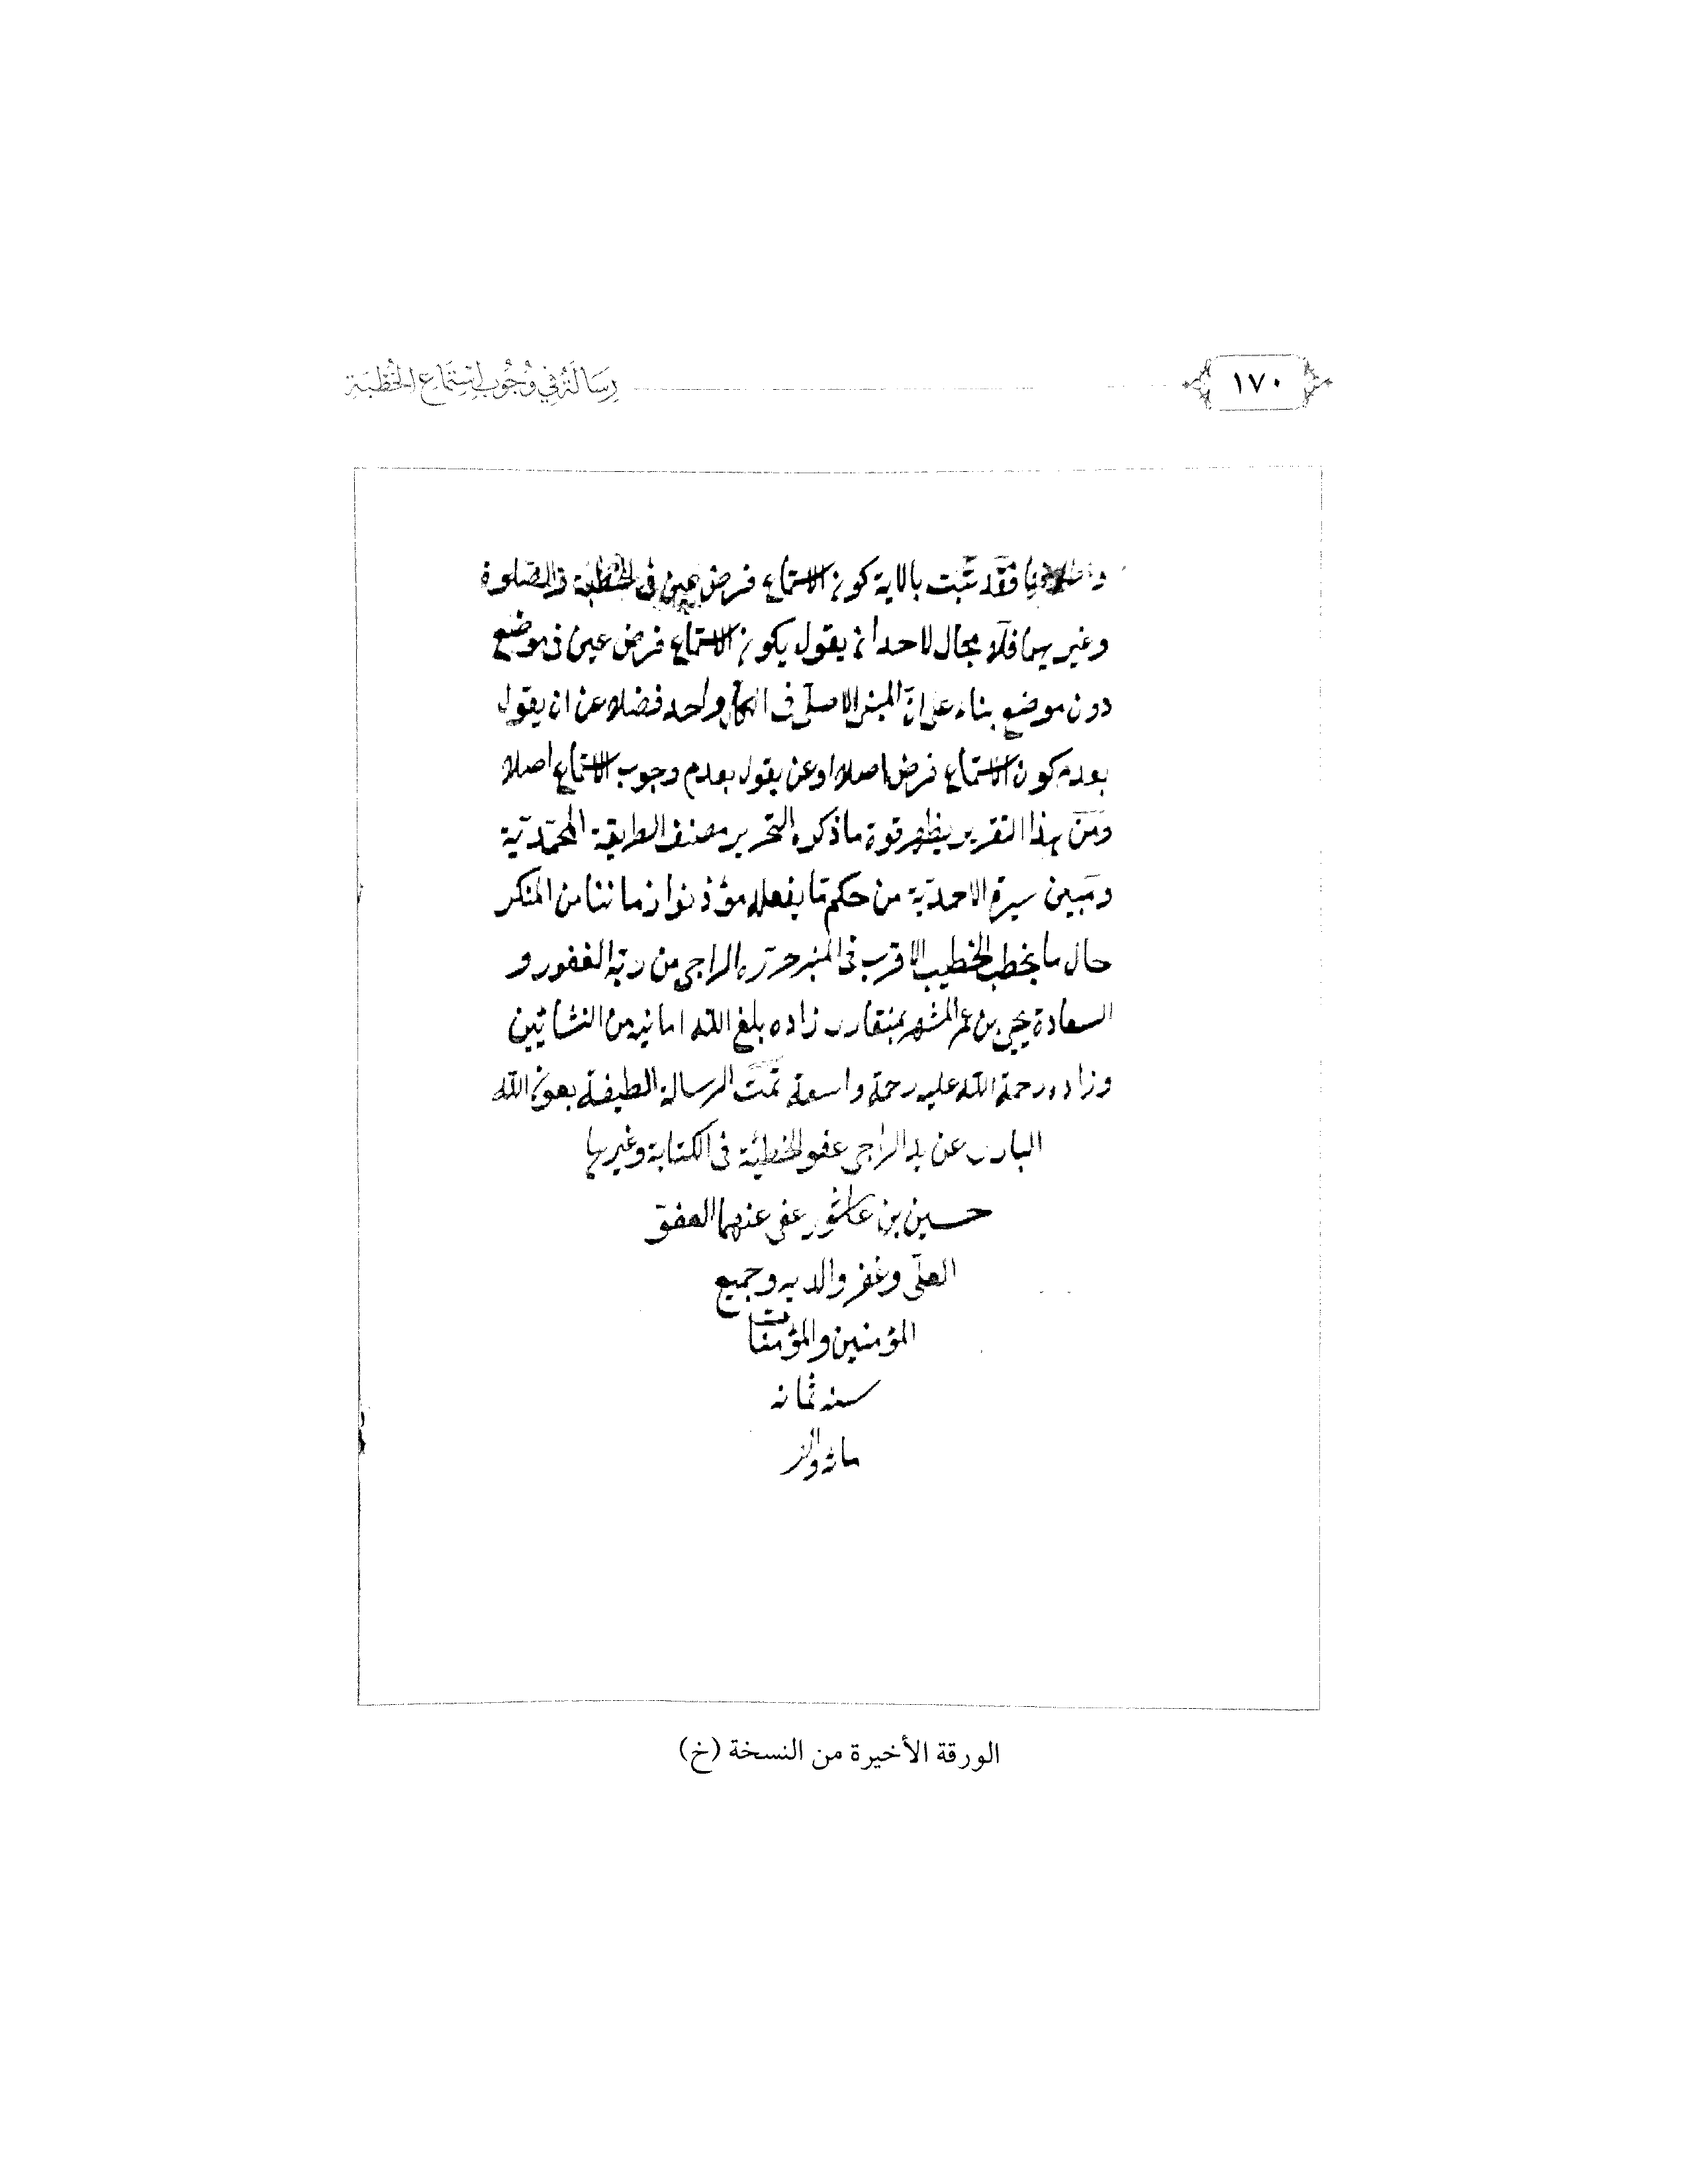 ١٧٠
رِسَالَةٌ فِي وُجُوبِ اسْتِمَاعِ الخُطْبَةِ
فقد ثبت بالاية كون الاستماع فرض عين فى الخطبة والصلوة
وغيرهما فلا مجال لاحد ان يقول يكون الاستماع فرض عين فى موضع
دون موضع بناء على انّ المبنى الاصلى فى الكل واحد فضلا عن ان يقول
بعدم كون الاستماع فرض اصلا او عن يقول بعدم وجوب الاستماع اصلا
ومن هذا التقرير يظهر قوة ما ذكره التحرير مصنف الطريقة المحمّديّة
ومبين سيرة الاحمديّة من حكم ما يفعله مؤذنوا زماننا من المنكر
حال ما يخطب الخطيب الاقرب فى المنبر حرّره الراجى من ربّه الغفور و
السعادة يحيى بن عمر المشتهر بمنقارى زاده بلغ الله امانيه من النشاتين
وزاده رحمة الله عليه رحمة واسعة تمّت الرسالة الطيفة بعون الله
البارى عن يد الراجى عفو الخطيئة فى الكتابة وغيرها
حسين بن عاشور عفى عنهما العفوّ
العلّى وغفر والديه وجميع
المؤمنين والمؤمنات
سنه ثمانه
مائه والف
الورقة الأخيرة من النسخة (خ)